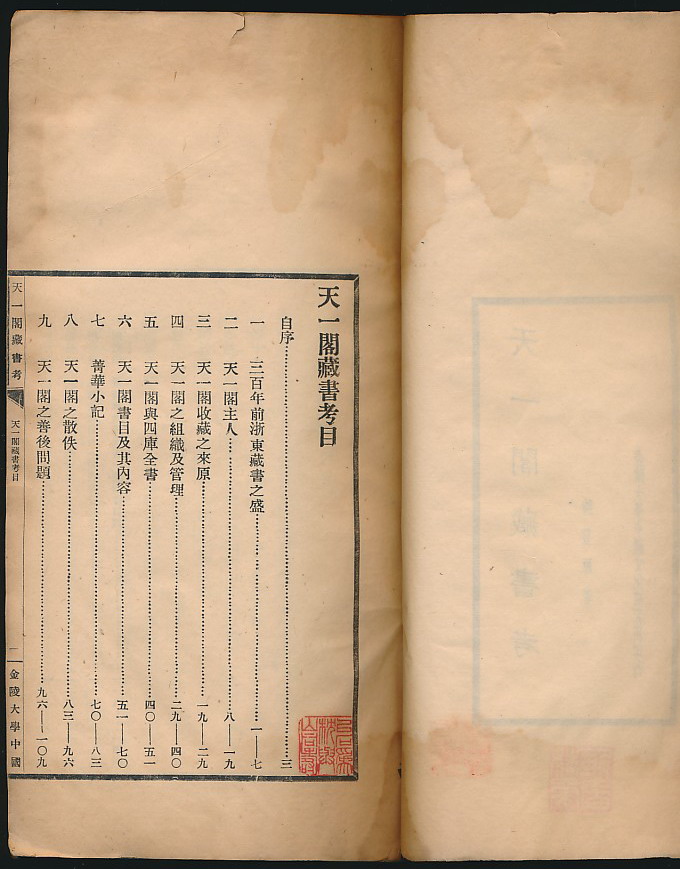 天一閣藏書考
天一閣藏書考目
自序……三
一　三百年前浙東藏書之盛……一——七
二　天一閣主人……八——一九
三　天一閣收藏之來原……一九——二九
四　天一閣之組織及管理……二九——四〇
五　天一閣與四庫全書……四〇——五一
六　天一閣書目及其內容……五一——七〇
七　菁華小記……七〇——八三
八　天一閣之散佚……八三——九六
九　天一閣之善後問題……九六——一〇九
天一閣藏書考
天一閣藏書考目
一
金陵大學中國